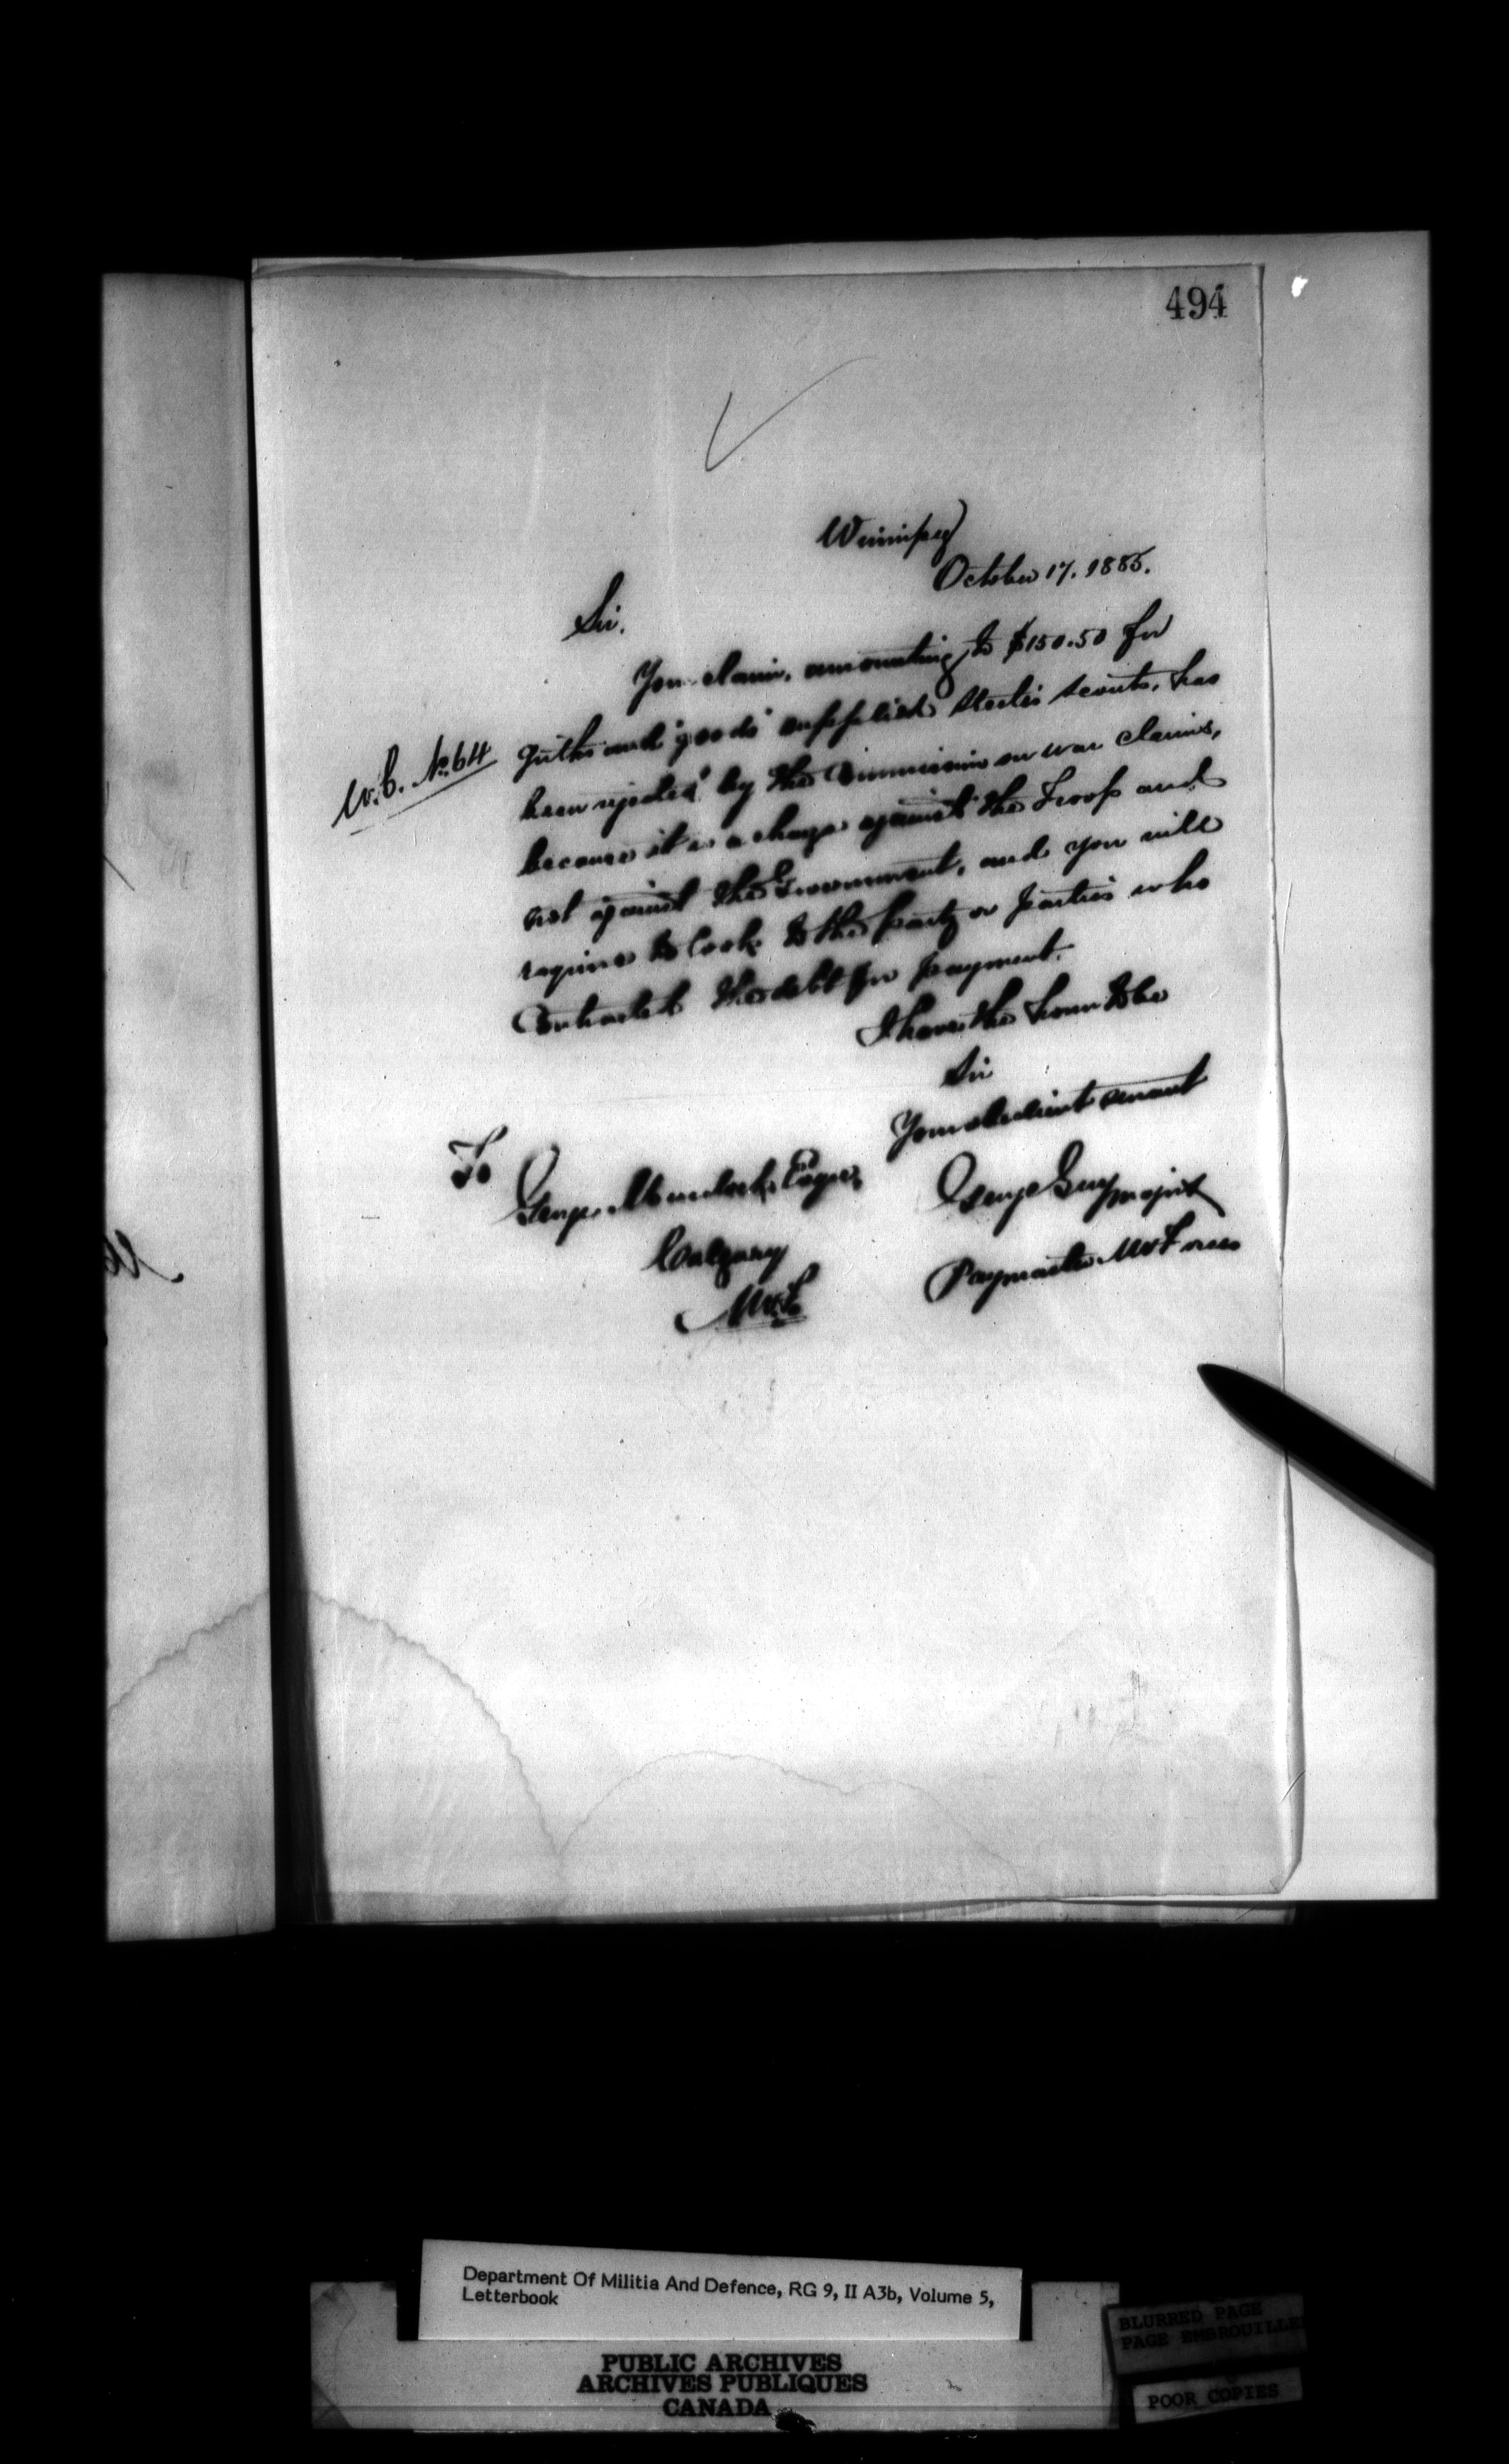 494
Winnipeg
October 17. 1885.
Sir,
Your claim, amounting to $150.50 for
W.C. No. 64
and goods supplied Steeles Scouts, has
been rejected by the Commission on war claims,
because it is a charge against the Troop and
not against the Government, and you will
require to look to the party or parties who
Contracted the debt for payment.
I have the honor to be
Sir
Your obedient servant
George Guy Major
Paymaster NW Force
To
George Murdoch Esquire,
Calgary
N.W.T.
Department Of Militia And Defence, RG 9, II A3b, Volume 5,
Letterbook
PUBLIC ARCHIVES
ARCHIVES PUBLIQUES
CANADA
BLURRED PAGE
PAGE EMBROUILLEE
POOR COPIES